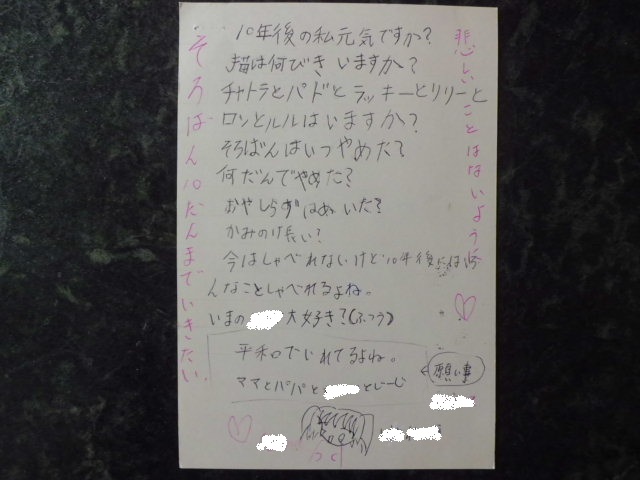 悲しいことはないよう
10年後の私元気ですか?
猫は何びきいますか?
チャトラとパドとラッキーとリリーと
ロンとルルはいますか?
そろばんはいつやめた?
何だんでやめた?
おやしらずはぬいた?
かみのけ長い?
今はしゃべれないけど10年後には
んなことしゃべれるよね。
いまの 大好き?(ふつう)
平和でいれてるよね。
ママとパパと とじーじ
願い事
そろばん10だんまでいきたい